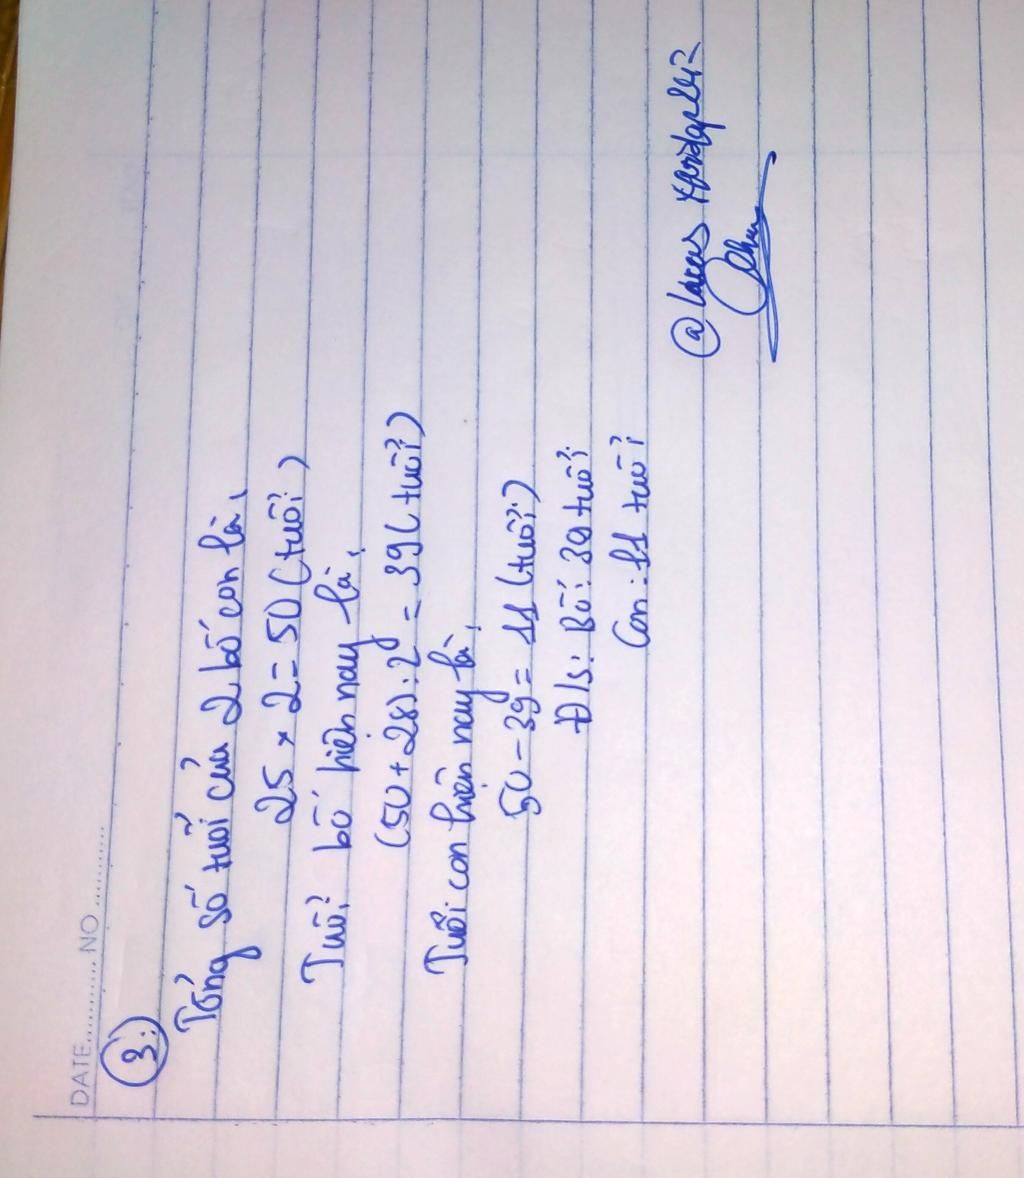 DATE.......... NO ..........
3:
Tổng số tuổi của 2 bố con là,
25 x 2 = 50 (tuổi)
Tuổi bố hiện nay là,
(50 + 28) : 2 = 39 (tuổi)
Tuổi con hiện nay là,
50 - 39 = 11 (tuổi)
Đ/s: Bố: 39 tuổi
Con: 11 tuổi
@ Lucas